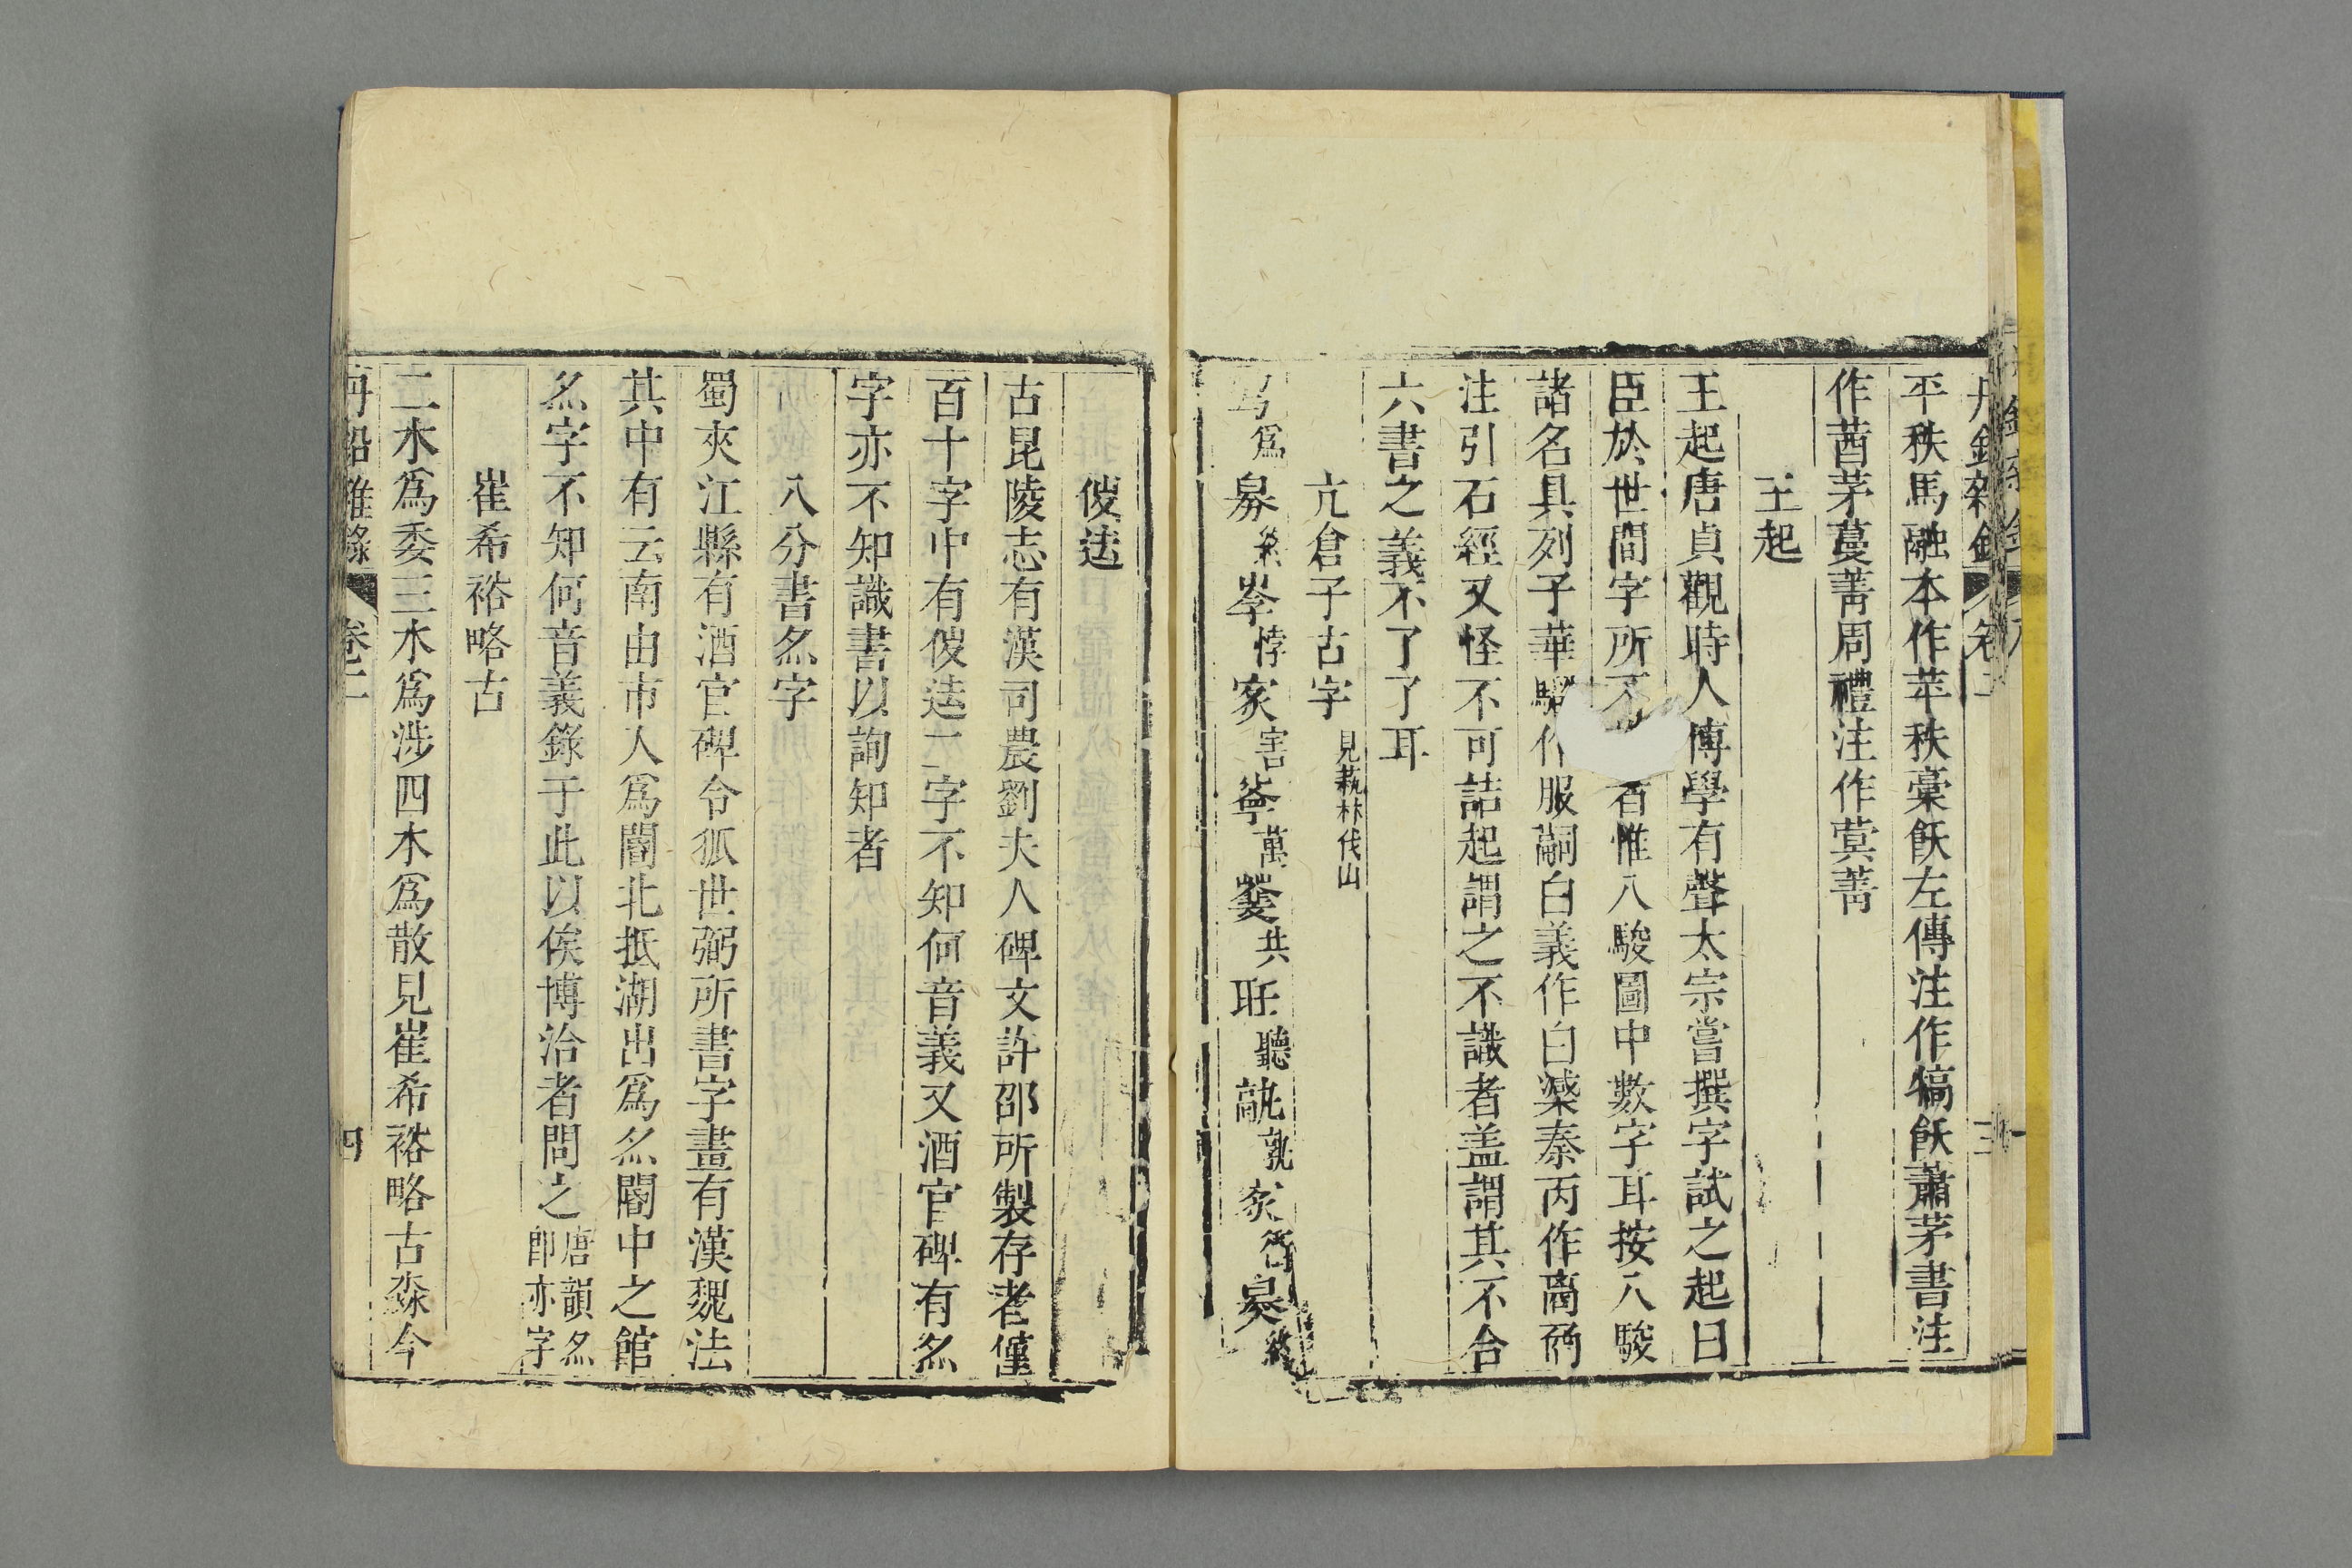 平秩馬融本作苹秩稾飫左傳注作犒飫蕭茅書注
作莤茅蔓菁周禮注作蓂菁
王起
王起唐貞觀時人博學有聲太宗嘗撰字試之起曰
臣於世間字所不 者惟八駿圖中數字耳按八駿
諸名具列子華騮作 服嗣白義作白 秦丙作
注引石經又怪不可詰起謂之不識者盖謂其不合
六書之義不了了耳
亢倉子古字見蓺林伐山
爲 岑悖 害 萬 共 聽 孰
㑓迲
古昆陵志有漢司農劉夫人碑文許邵所製存者僅
百十字中有㑓迲二字不知何音義又酒官碑有𠇾
字亦不知識書以詢知者
八分書𠇾字
蜀夾江縣有酒官碑令狐世弼所書字畫有漢魏法
其中有云南由市人爲闇北抵湖出爲𠇾閣中之館
𠇾字不知何音義錄于此以俟博洽者問之唐韻𠇾
卽亦字
崔希裕略古
二水爲委三水爲涉四水爲散見崔希裕略古淼今
丹鉛雜錄 卷二 四